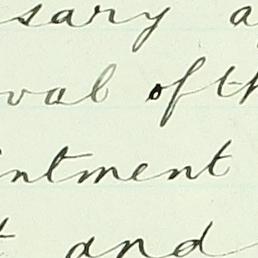 sary a
val of th
intment
t and